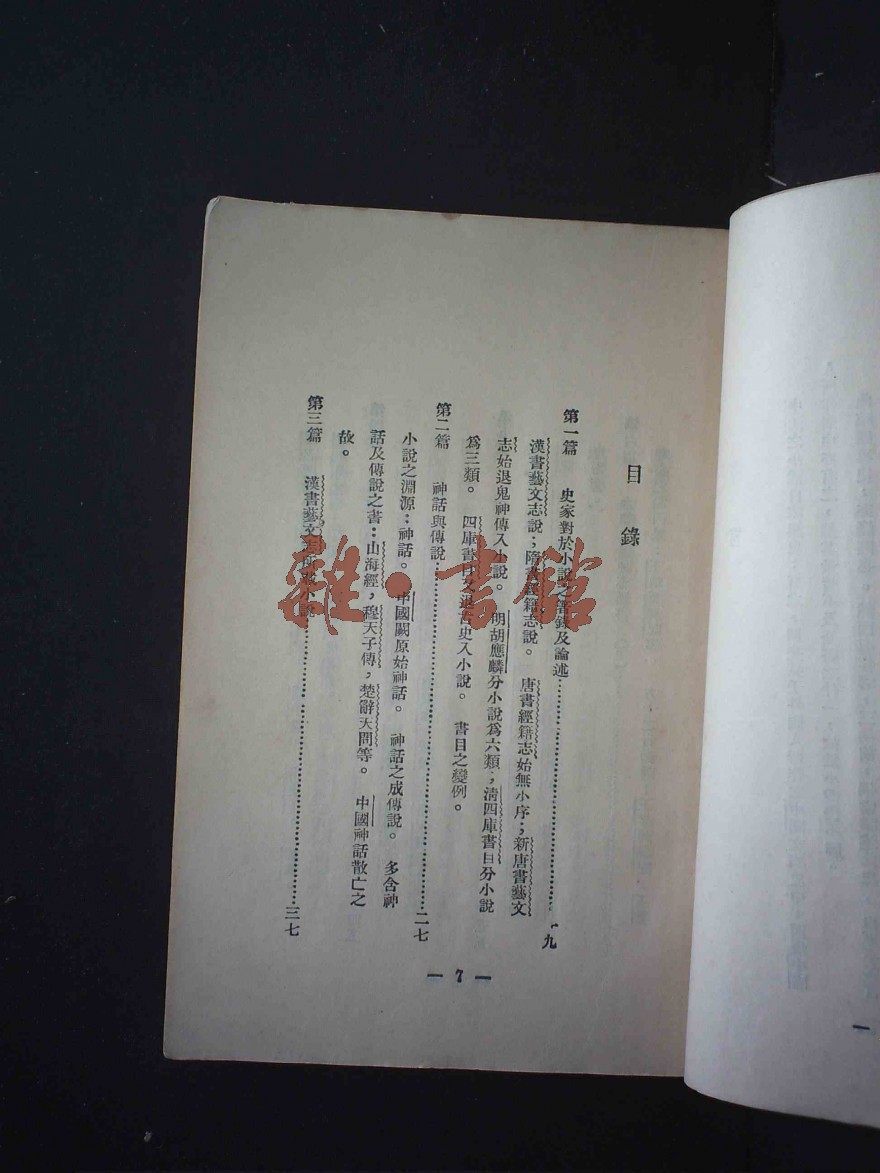 目錄
第一篇 史家對於小說之著錄及論述……………………一九
漢書藝文志說；隋書經籍志說。 唐書經籍志始無小序；新唐書藝文
志始退鬼神傳入小說。 明胡應麟分小說爲六類；清四庫書目分小說
爲三類。 四庫書目又退古史入小說。 書目之變例。
第二篇 神話與傳說……………………二七
小說之淵源：神話。 中國闕原始神話。 神話之成傳說。 多含神
話及傳說之書：山海經，穆天子傳，楚辭天問等。 中國神話散亡之
故。
第三篇 漢書藝文志所載小說……………………三七
— 7 —
雜·書館